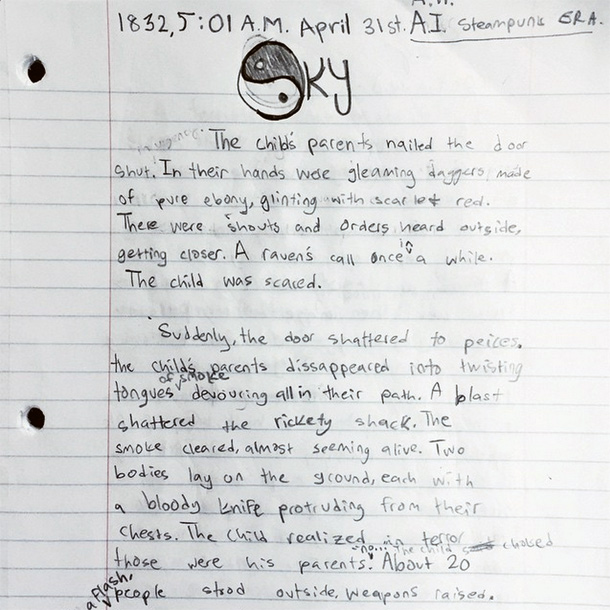 1832, 5:01 A.M. April 31st. A.I. Steampunk ERA.
SKY
The child's parents nailed the door
shut. In their hands were gleaming daggers, made
of pure ebony, glinting with scarlet red.
There were shouts and orders heard outside,
getting closer. A raven's call once in a while.
The child was scared.
Suddenly, the door shattered to peices.
the child's parents dissappeared into twisting
tongues of smoke devouring all in their path. A blast
shattered the rickety shack. The
smoke cleared, almost seeming alive. Two
bodies lay on the ground, each with
a bloody knife protruding from their
chests. The child realized in terror
those were his parents. "no... The child choked
About 20
a flash,
people stood outside, weapons raised.